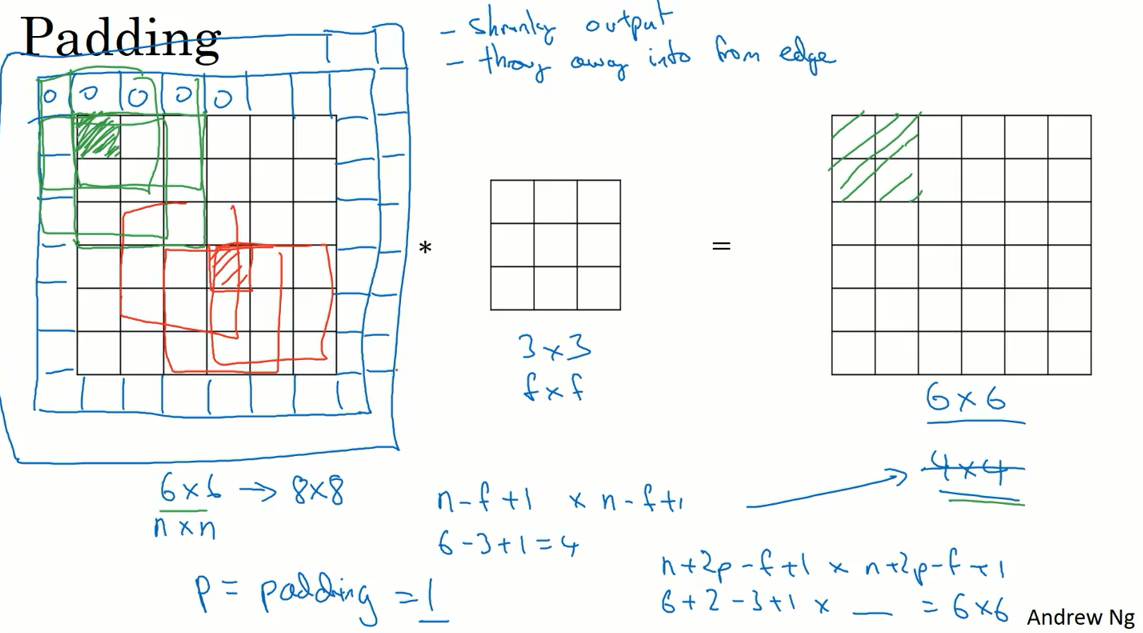 Padding
- shrinky output
- throw away info from edge
0 0 0 0 0
*
=
3 × 3
f × f
6 × 6
4 × 4
6 × 6 → 8×8
n × n
n - f + 1 × n - f + 1
6 - 3 + 1 = 4
p = padding = 1
n+2p-f+1 × n+2p-f+1
6+2-3+1 × __ = 6×6
Andrew Ng